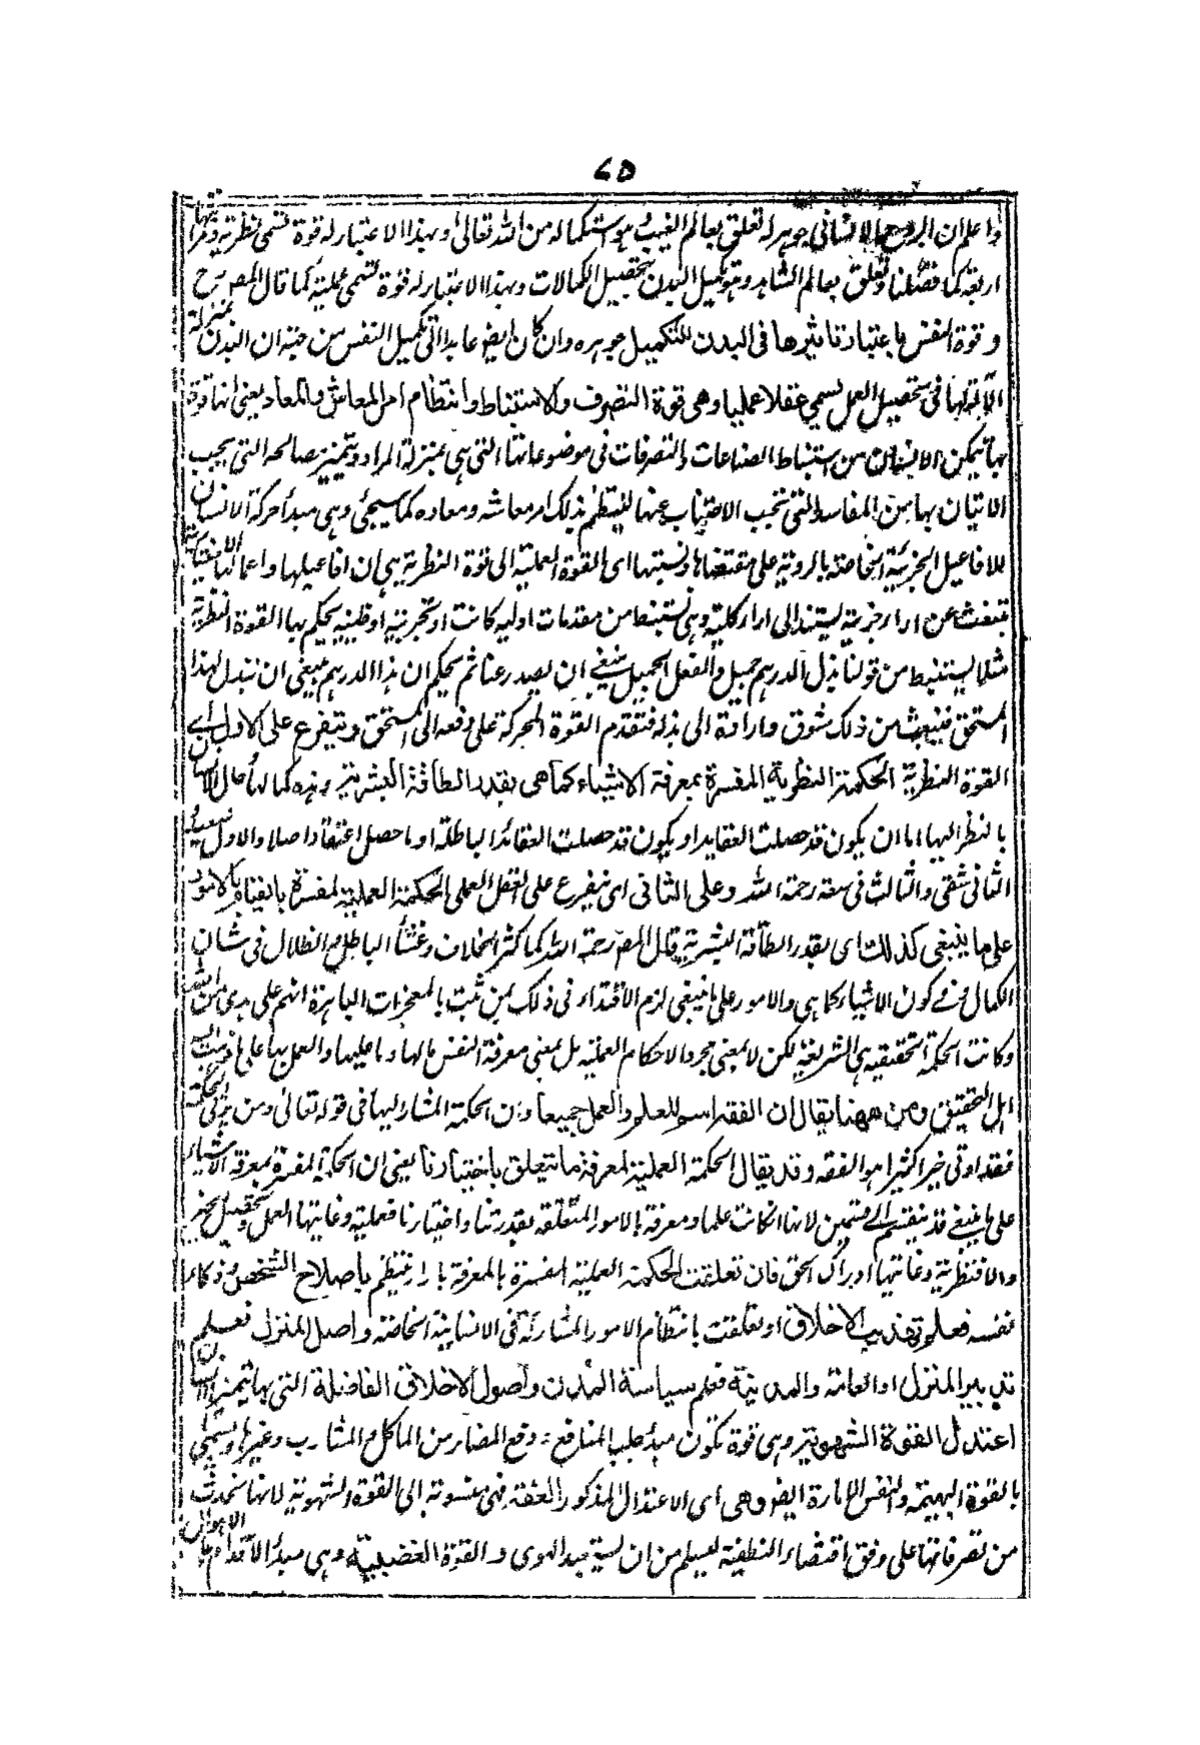 ٦٥
واعلم ان الروح الانسانى جوهر له تعلق بعالم الغيب هو استكماله من الله تعالى وبهذا الاعتبار له قوة تسمى نظرية ومراتبها
اربعة كما فصلنا وتعلق بعالم الشاهد وهو تكميل البدن بتحصيل الكمالات وبهذا الاعتبار له قوة تسمى عملية كما قال المصرح
وقوة النفس باعتبار تاثيرها فى البدن لتكميل جوهره وان كان ايض عايدا الى تكميل النفس من جهة ان البدن بمنزلة
الآلة لها فى تحصيل العمل يسمى عقلا عمليا وهى قوة التصرف والاستنباط وانتظام امر المعاش والمعاد يعنى انها قوة
بها يتمكن الانسان من استنباط الصناعات والتصرفات فى موضوعاتها التى هى بمنزلة المراد وتمييز مصالحه التى يجب
الاتيان بها من المفاسد التى تجب الاجتناب عنها لينتظم بذلك امر معاشه ومعاده كما سيجئ وهى مبدأ حركة الانسان
للافاعيل الجزئية الخاصة بالروية على مقتضاها ونسبتها اى القوة العملية الى قوة النظرية هى ان افاعيلها واعمالها الاختيارية
تنبعث عن اراء جزئية ليستند الى اراء كلية وهى تستنبط من مقدمات اولية كانت او تجربية او ظنية يحكم بها القوة النظرية
مثلا يستنبط من قولنا بذل الدرهم جميل والفعل الجميل ينبغى ان يصدر عنا ثم يحكم ان هذا الدرهم ينبغى ان نبذل لهذا
المستحق فينبعث من ذلك شوق وارادة الى بذله فتقدم القوة المحركة على دفعه الى المستحق ويتفرع على الاول اى
القوة النظرية الحكمة النظرية المفسرة بمعرفة الاشياء كما هى بقدر الطاقة البشرية وهذه كمالها حال الانسان
بالنظر اليها اما ان يكون قد حصلت العقايد او يكون قد حصلت العقائد الباطلة او ما حصل اعتقادا اصلا والاول سعيد
الثانى شقى والثالث فى سعة رحمة الله وعلى الثانى اى يتفرع على العقل العملى الحكمة العملية المفسرة بالقيام بالامور
على ما ينبغى كذلك اى بقدر الطاقة البشرية قال المصرح رحمة الله كما كثر الخلاف وغشا الباطل والضلال فى شان
الكمال وفى كون الاشياء كما هى والامور على ما ينبغى لزم الاقتداء فى ذلك بمن ثبت بالمعجزات الباهرة انهم على هدى من الله
وكانت الحكمة الحقيقية هى الشريعة لكن لا بمعنى مجرد الاحكام العملية بل بمعنى معرفة النفس مالها وما عليها والعمل بها على ما ذهبت اليه
اهل التحقيق ومن ههنا يقال ان الفقه اسم للعلم والعمل جميعا وان الحكمة المشار اليها فى قوله تعالى ومن يؤتى الحكمة
فقد اوتى خيرا كثيرا هو الفقه وقد يقال الحكمة العملية لمعرفة ما يتعلق باختيارنا يعنى ان الحكمة المفسرة بمعرفة الاشياء
على ما ينبغى قد ينقسم الى قسمين لانها ان كانت علما ومعرفة بالامور المتعلقة بقدرتنا واختيارنا فعملية وغايتها العمل وتحصيل الخير
والا فنظرية وغايتها ادراك الحق فان تعلقت الحكمة العملية المفسرة بالمعرفة باراء ينتظم باصلاح الشخص وذكاء
نفسه فعلم تهذيب الاخلاق او تعلقت بانتظام الامور المشاركة فى الانسانية الخاصة واصل المنزل فعلم
تدبير المنزل او العامة والمدنية فعلم سياسة المدن واصول الاخلاق الفاضلة التى بها يتميز الانسان
اعتدال القوة الشهوية وهى قوة تكون مبدأ جلب المنافع ودفع المضار من الماكل والمشارب وغيرها ويسمى
بالقوة البهيمة والنفس الامارة ايض وهى اى الاعتدال المذكور العفة فهى منسوبة الى القوة الشهوية لانها تحدث
من تصرفاتها على وفق اقتضاء النطقية ليسلم من ان يستعبد الهوى والقوة الغضبية وهى مبدأ الاقدام على الاهوال